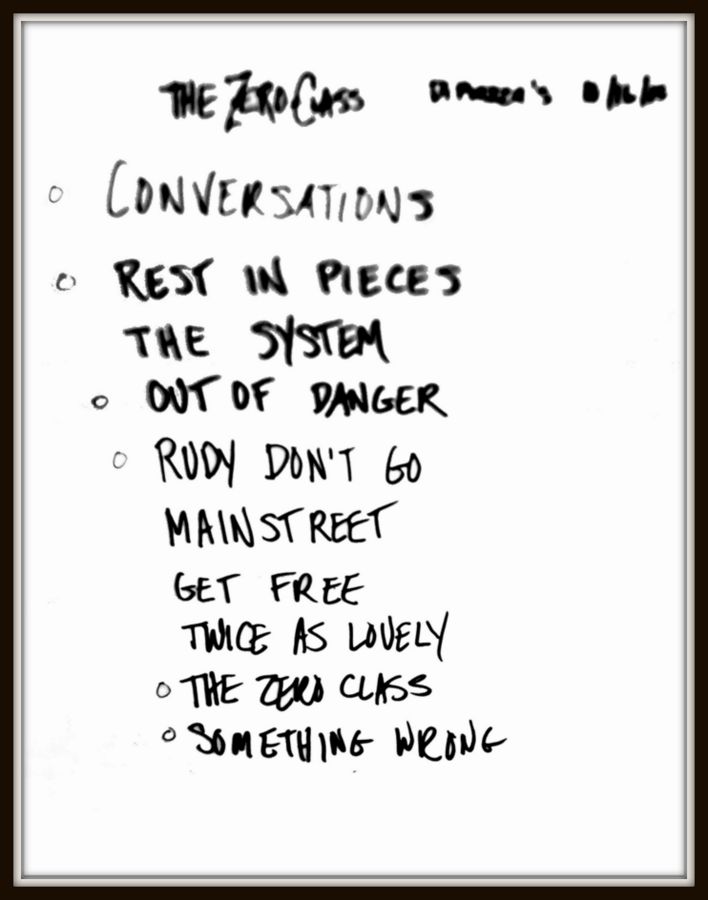 THE ZERO CLASS
CONVERSATIONS
REST IN PIECES
THE SYSTEM
OUT OF DANGER
RUDY DON'T GO
MAINSTREET
GET FREE
TWICE AS LOVELY
THE ZERO CLASS
SOMETHING WRONG